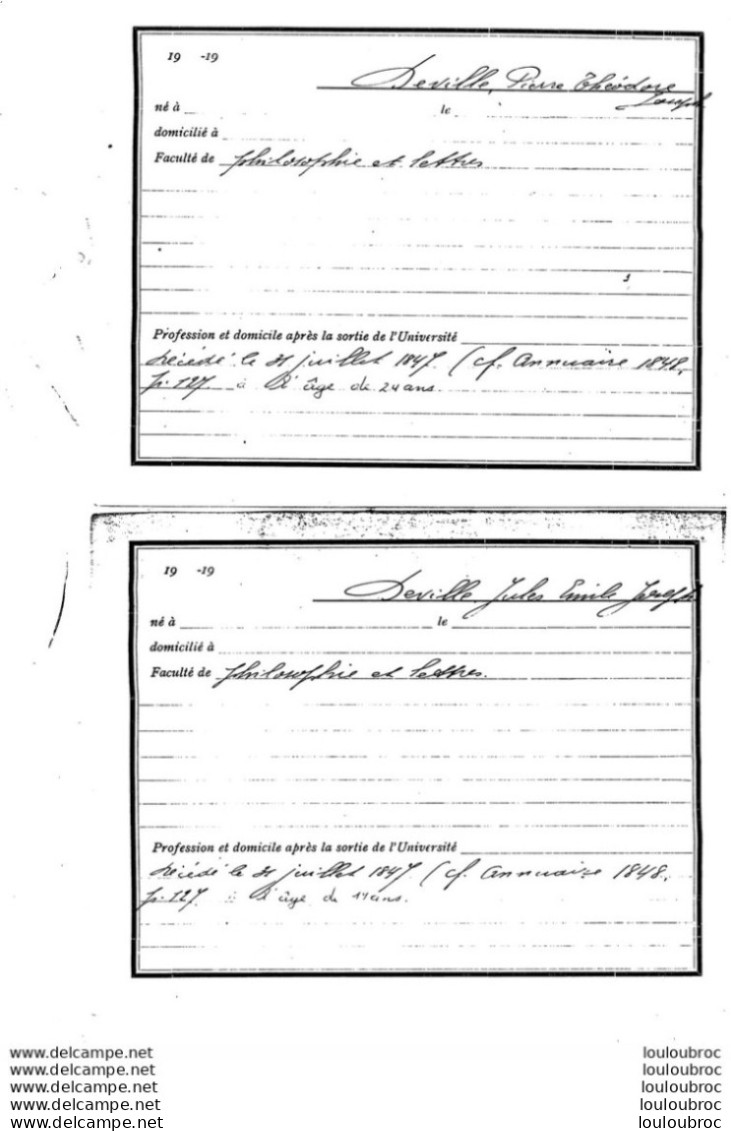 19 -19
Deville, Pierre Théodore
Joseph
né à le
domicilié à
Faculté de philosophie et lettres
Profession et domicile après la sortie de l'Université
décédé le 31 juillet 1847 (cf. Annuaire 1848,
p. 127 à l'âge de 24 ans.
19 -19
Deville Jules Emile Joseph
né à le
domicilié à
Faculté de philosophie et lettres.
Profession et domicile après la sortie de l'Université
décédé le 31 juillet 1847 (cf. Annuaire 1848,
p. 127 à l'âge de ans.
www.delcampe.net louloubroc
www.delcampe.net louloubroc
www.delcampe.net louloubroc
www.delcampe.net louloubroc
www.delcampe.net louloubroc